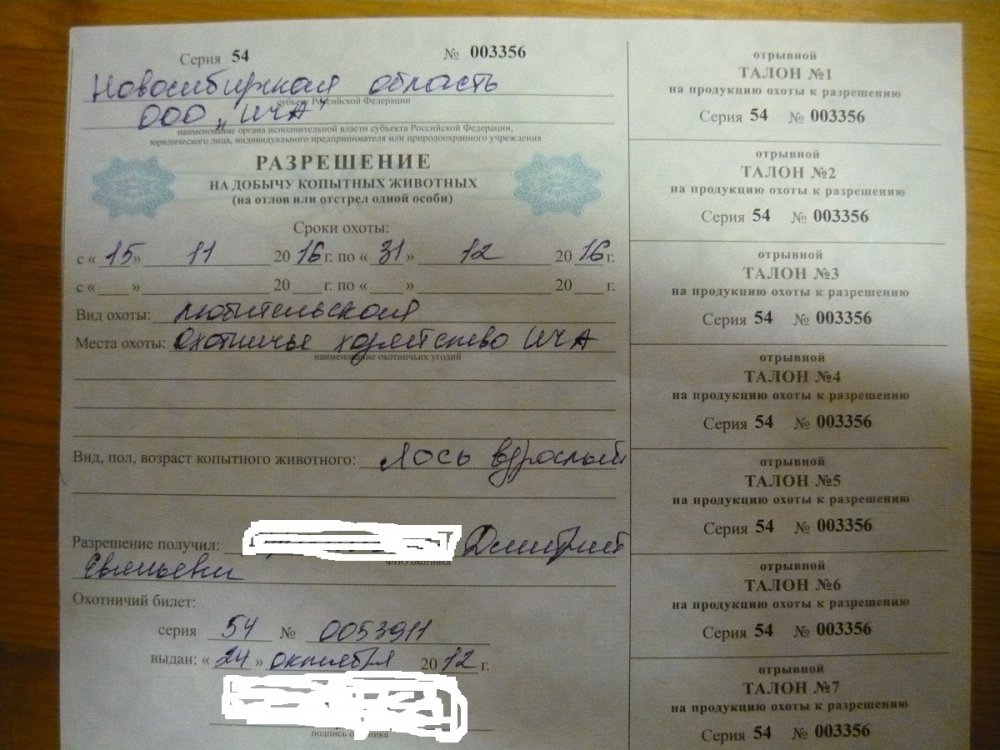 Серия 54 № 003356
Новосибирская область
субъект Российской Федерации
ООО „ИЧА"
наименование органа исполнительной власти субъекта Российской Федерации,
юридического лица, индивидуального предпринимателя или природоохранного учреждения
РАЗРЕШЕНИЕ
НА ДОБЫЧУ КОПЫТНЫХ ЖИВОТНЫХ
(на отлов или отстрел одной особи)
Сроки охоты:
с « 15 » 11 20 16 г. по « 31 » 12 20 16 г.
с « » 20 г. по « » 20 г.
Вид охоты: любительская
Места охоты: Охотничье хозяйство ИЧА
наименование охотничьих угодий
Вид, пол, возраст копытного животного: Лось взрослый
Разрешение получил: Дмитрий
ФИО охотника
Охотничий билет:
серия 54 № 0053911
выдан: « 24 » октября 20 12 г.
подпись охотника
отрывной
ТАЛОН №1
на продукцию охоты к разрешению
Серия 54 № 003356
отрывной
ТАЛОН №2
на продукцию охоты к разрешению
Серия 54 № 003356
отрывной
ТАЛОН №3
на продукцию охоты к разрешению
Серия 54 № 003356
отрывной
ТАЛОН №4
на продукцию охоты к разрешению
Серия 54 № 003356
отрывной
ТАЛОН №5
на продукцию охоты к разрешению
Серия 54 № 003356
отрывной
ТАЛОН №6
на продукцию охоты к разрешению
Серия 54 № 003356
отрывной
ТАЛОН №7
на продукцию охоты к разрешению
Серия 54 № 003356